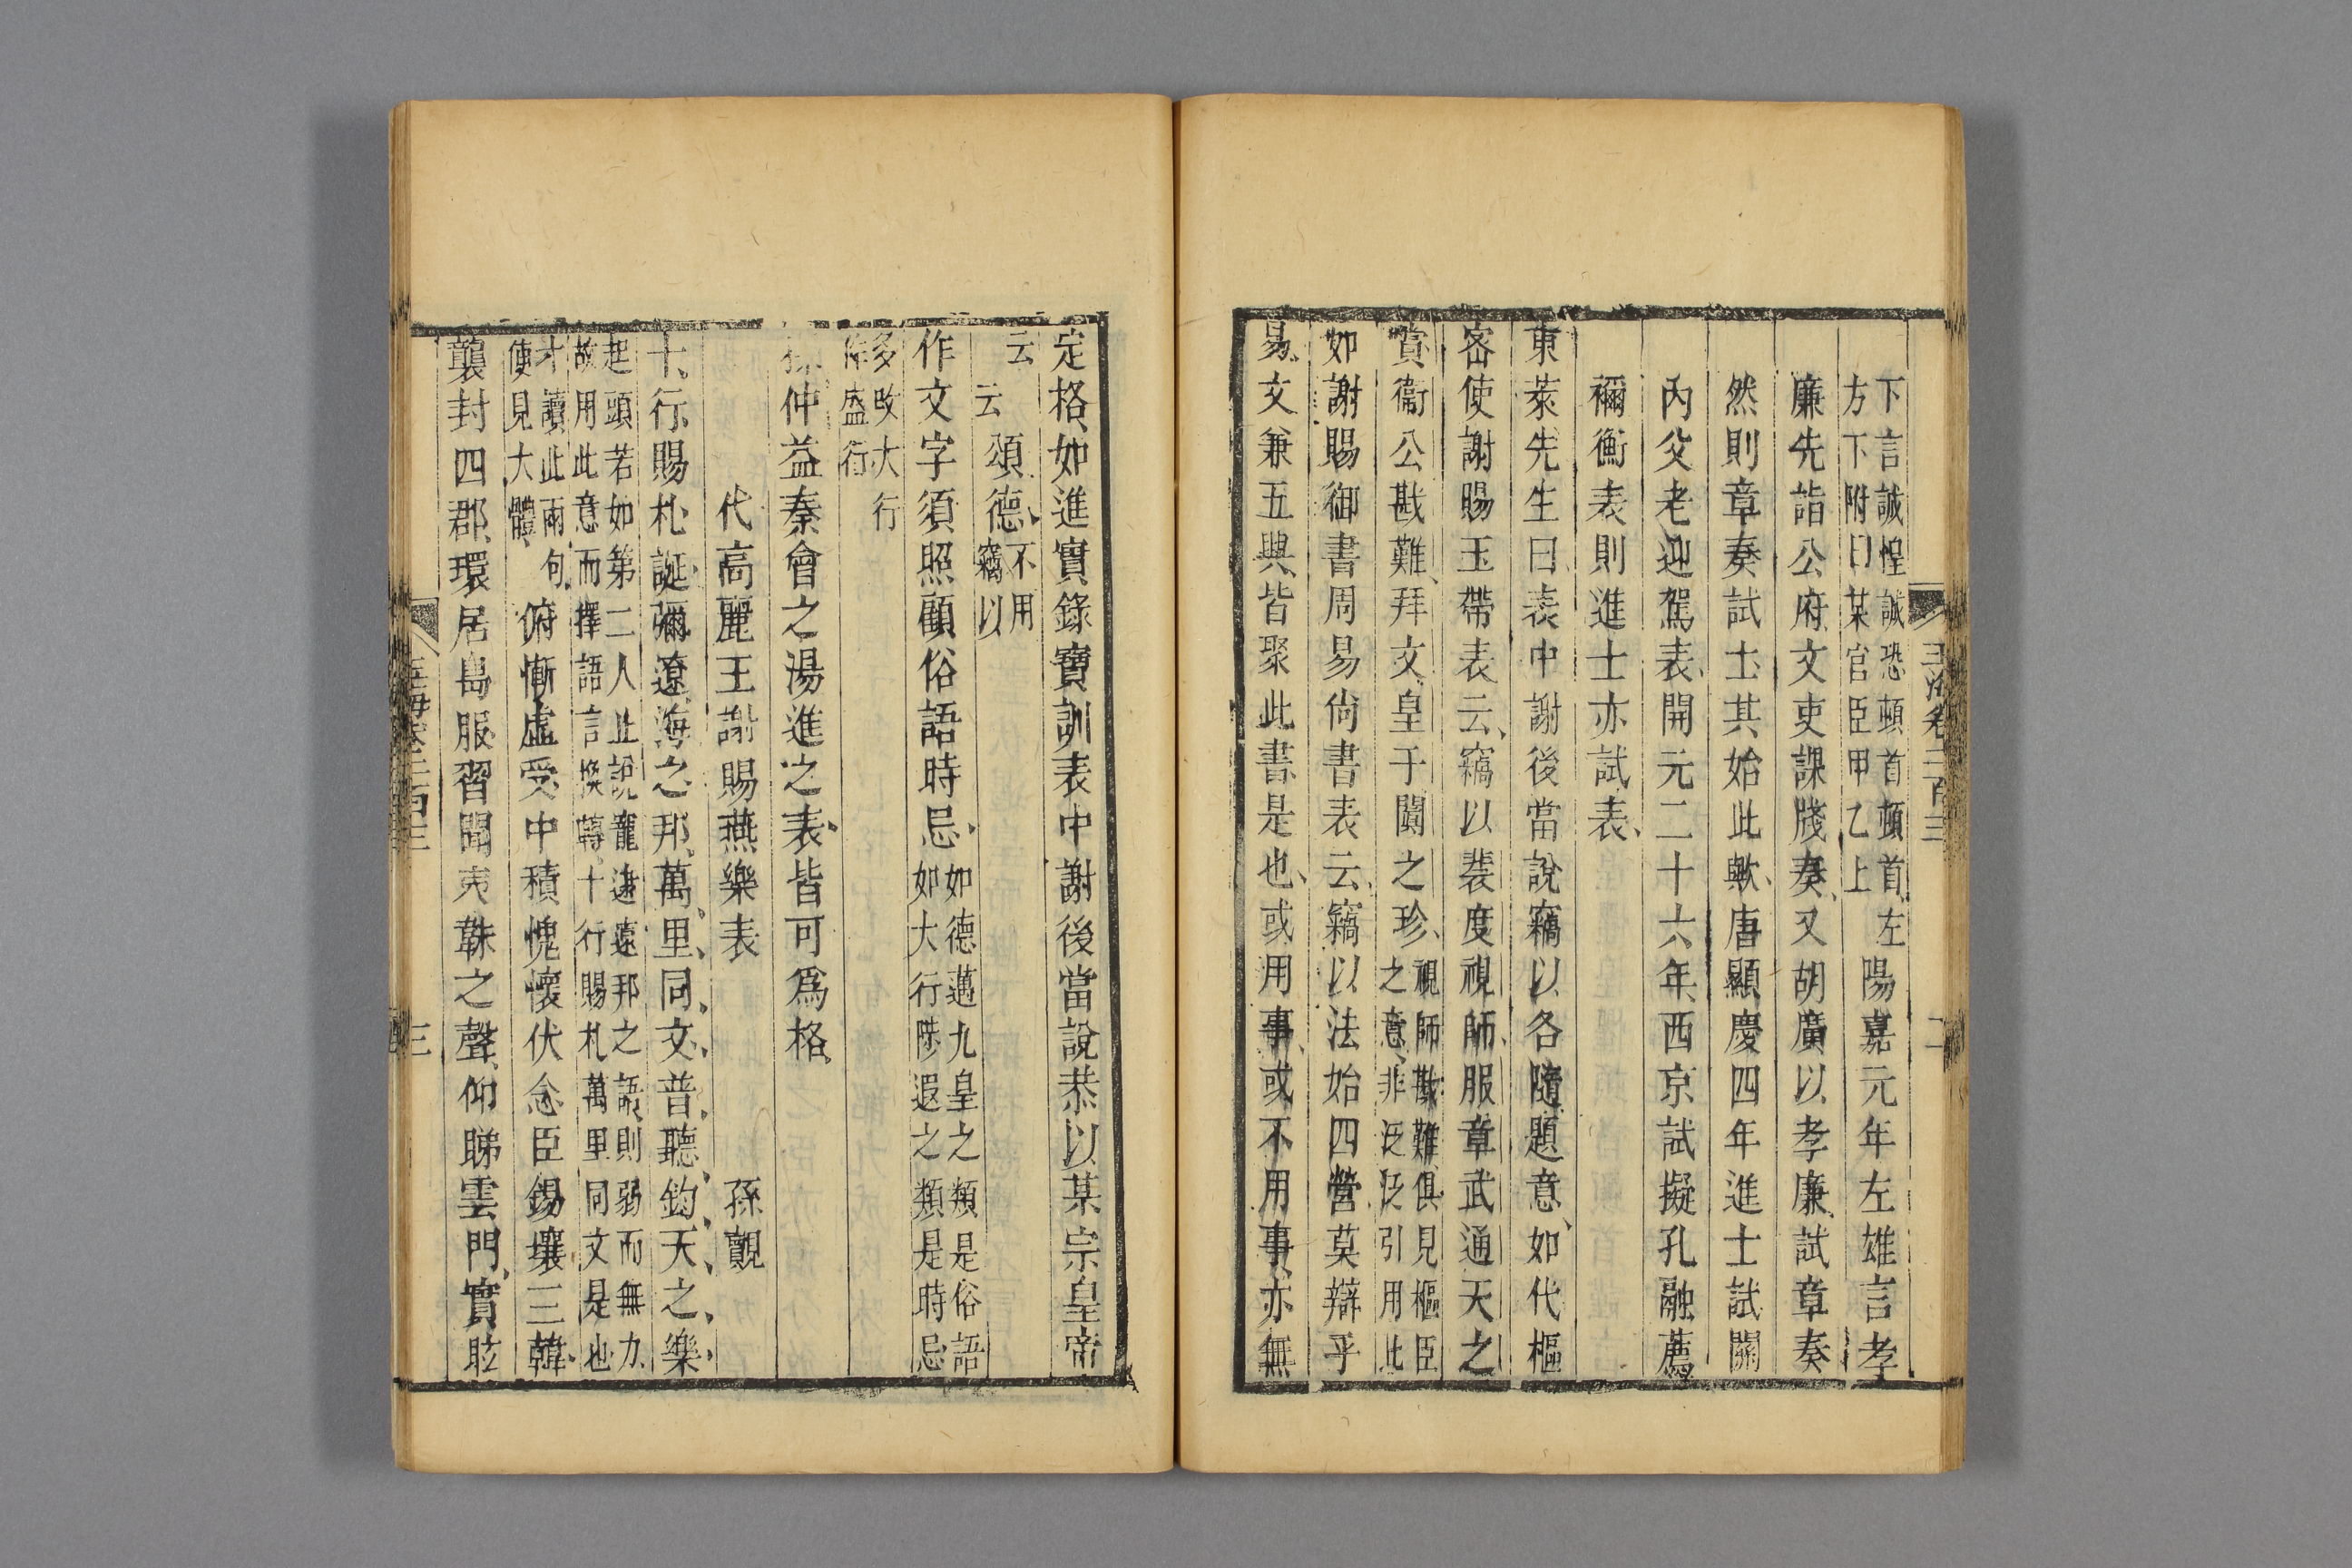 玉海卷二百三
二
下言誠惶誠恐頓首頓首左
方下附曰某官臣甲乙上
陽嘉元年左雄言孝
廉先詣公府文吏課牋奏又胡廣以孝廉試章奏
然則章奏試士其始此歟唐顯慶四年進士試關
內父老迎駕表開元二十六年西京試擬孔融薦
禰衡表則進士亦試表
東萊先生曰表中謝後當說竊以各隨題意如代樞
密使謝賜玉帶表云竊以裴度視師服章武通天之
賞衞公戡難拜文皇于闐之珍
視師戡難俱見樞臣
之意非泛泛引用此
如謝賜御書周易尙書表云竊以法始四營莫辯乎
易文兼五典皆聚此書是也或用事或不用事亦無
定格如進實錄寶訓表中謝後當說恭以某宗皇帝
云云頌德
不用
竊以
作文字須照顧俗語時忌
如德邁九皇之類是俗語
如大行陟遐之類是時忌
多改大行
作盛行
孫仲益秦會之湯進之表皆可爲格
代高麗王謝賜燕樂表 孫覿
十行賜札誕彌遼海之邦萬里同文普聽鈞天之樂
起頭若如第二人止說寵逮遠邦之語則弱而無力
故用此意而擇語言換轉十行賜札萬里同文是也
才讀此兩句
使見大體
俯慚虛受中積愧懷伏念臣錫壤三韓
襲封四郡環居島服習聞夷韎之聲仰睇雲門實眩
玉海卷二百三
三